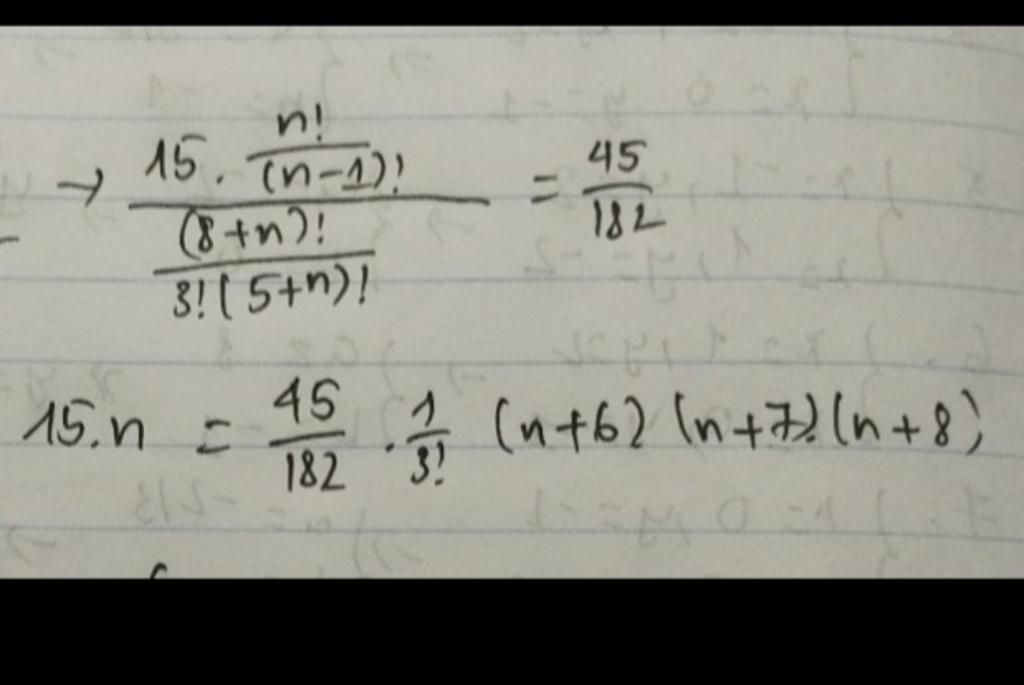 → (15. n!/(n-1)!)/((8+n)!/(3!(5+n)!)) = 45/182
15.n = 45/182 . 1/3! (n+6) (n+7).(n+8)